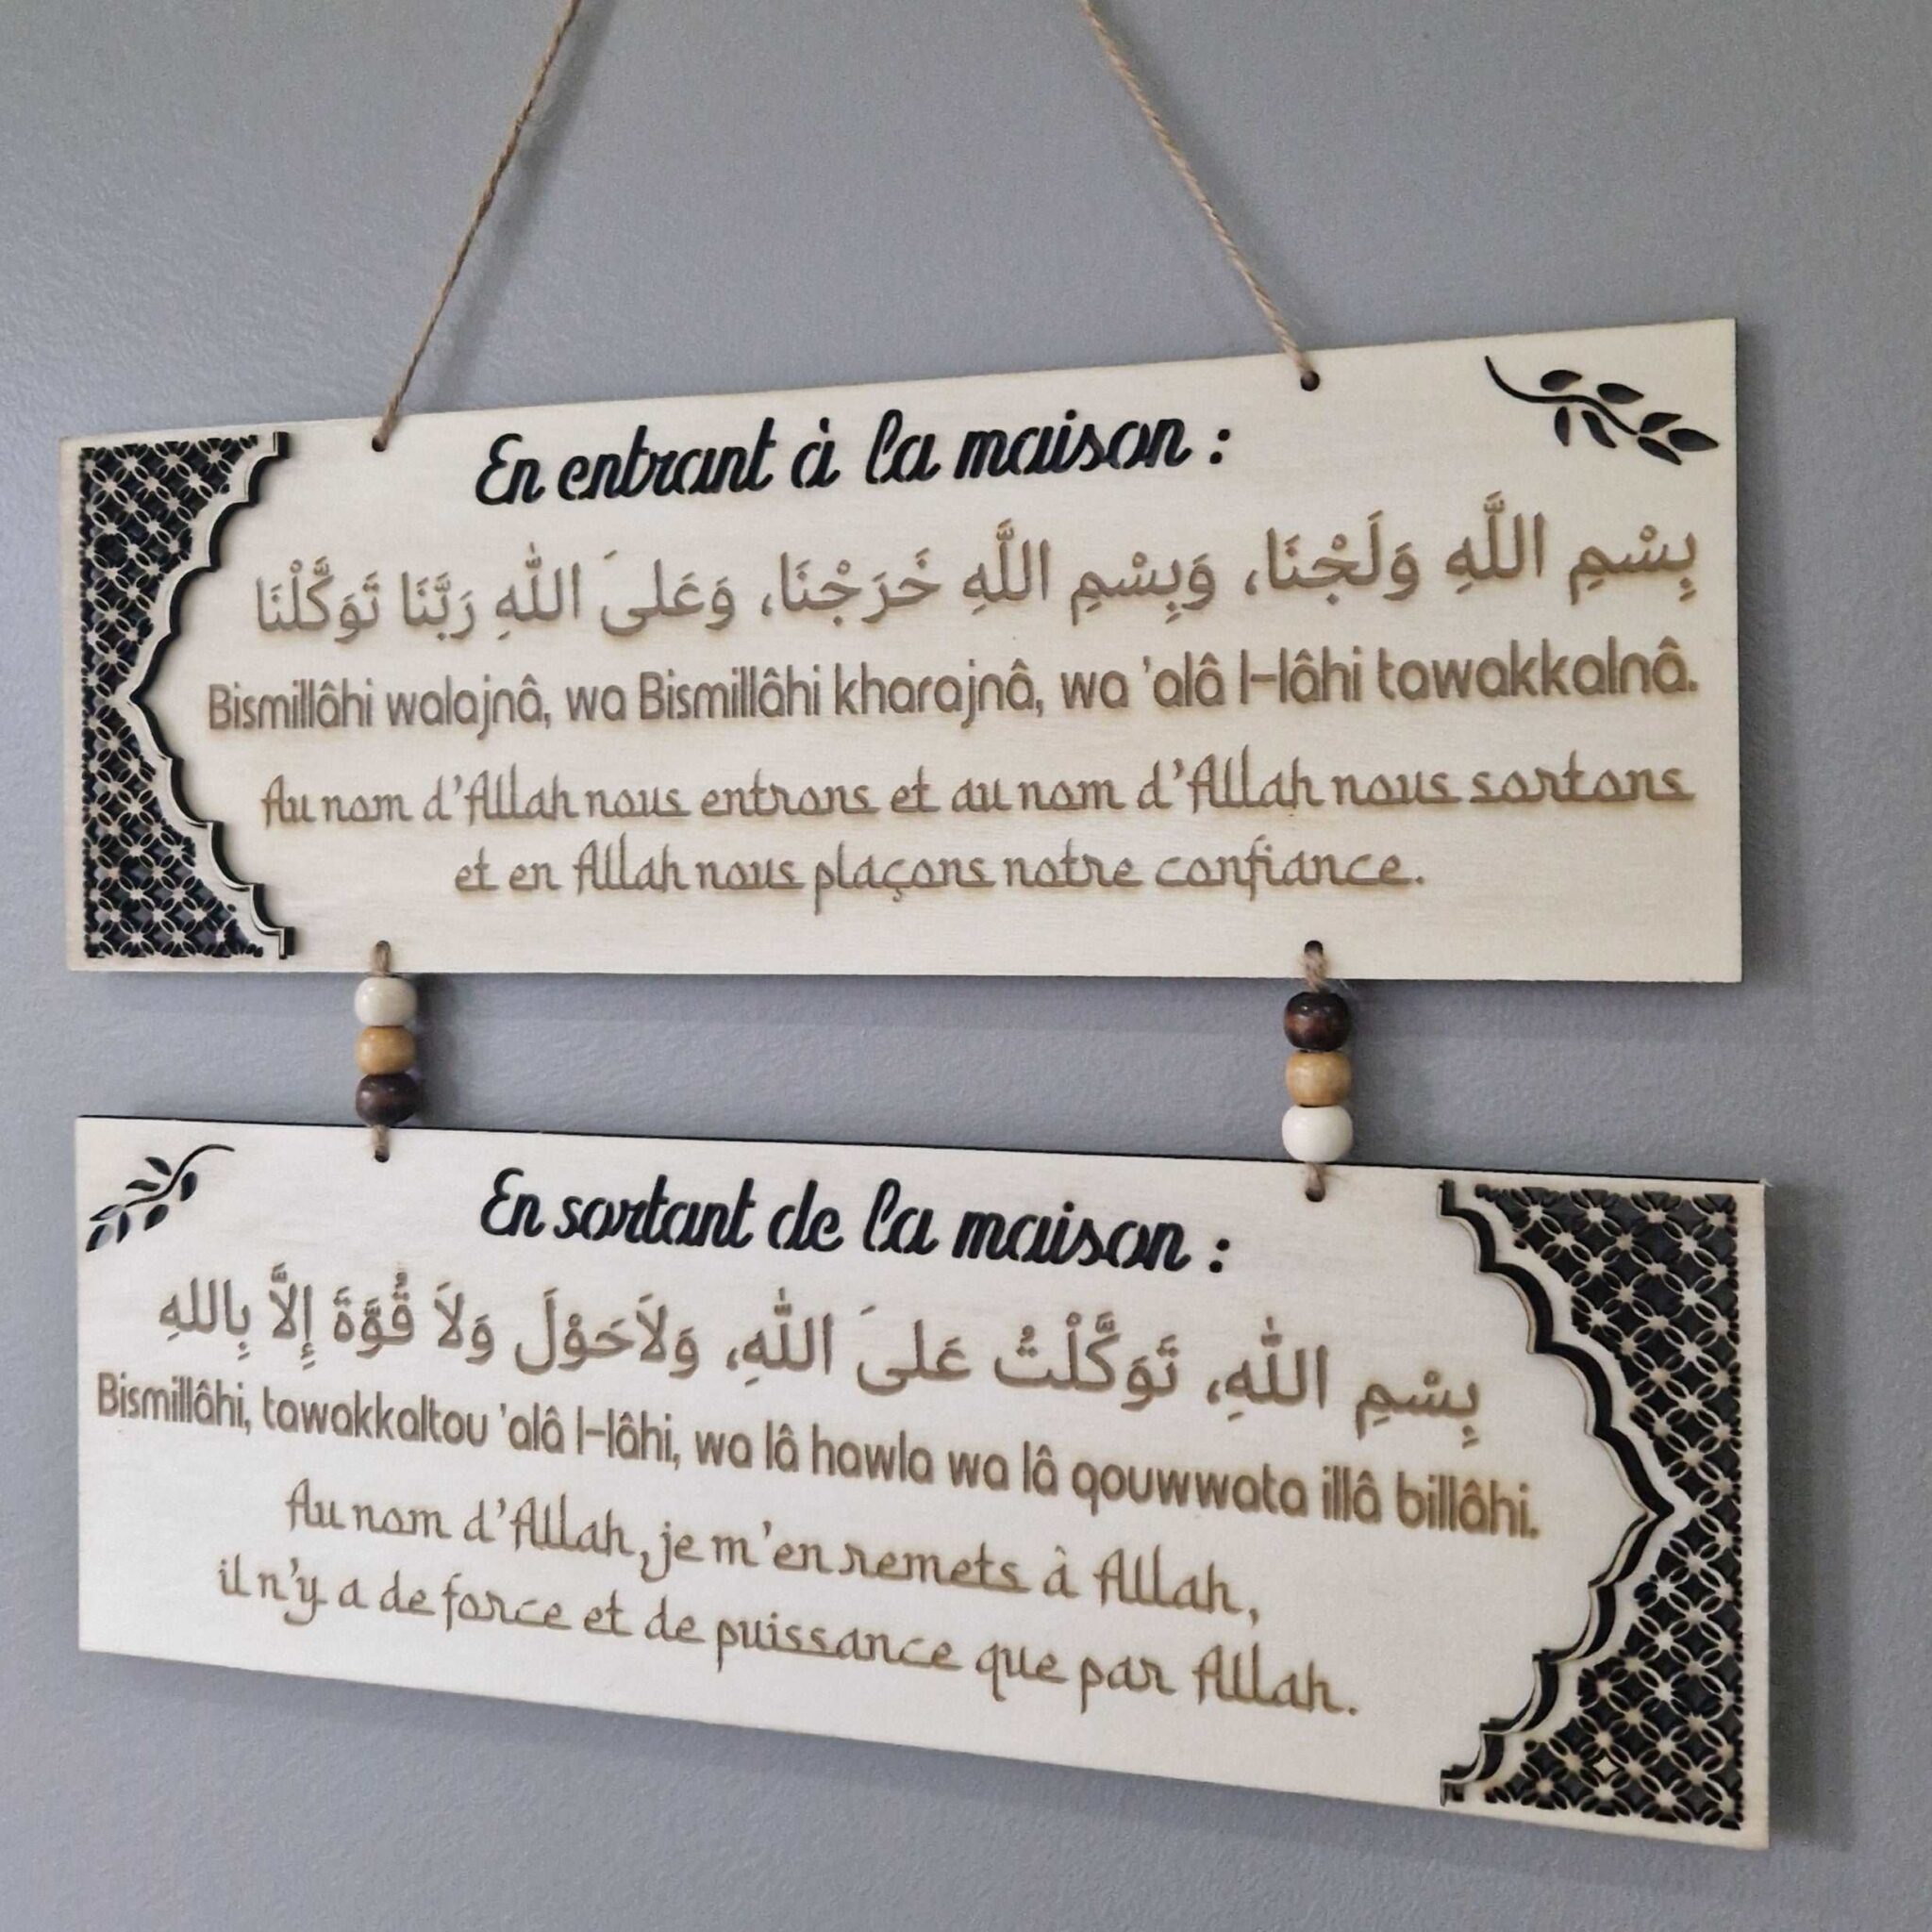 En entrant à la maison :
بِسْمِ اللَّهِ وَلَجْنَا، وَبِسْمِ اللَّهِ خَرَجْنَا، وَعَلَى اللهِ رَبَّنَا تَوَكَّلْنَا
Bismillâhi walajnâ, wa Bismillâhi kharajnâ, wa 'alâ l-lâhi tawakkalnâ.
Au nom d'Allah nous entrons et au nom d'Allah nous sortons
et en Allah nous plaçons notre confiance.
En sortant de la maison :
بِسْمِ اللهِ، تَوَكَّلْتُ عَلَى اللهِ، وَلاَحَوْلَ وَلاَ قُوَّةَ إِلاَّ بِاللهِ
Bismillâhi, tawakkaltou 'alâ l-lâhi, wa lâ hawla wa lâ qouwwata illâ billâhi.
Au nom d'Allah, je m'en remets à Allah,
il n'y a de force et de puissance que par Allah.